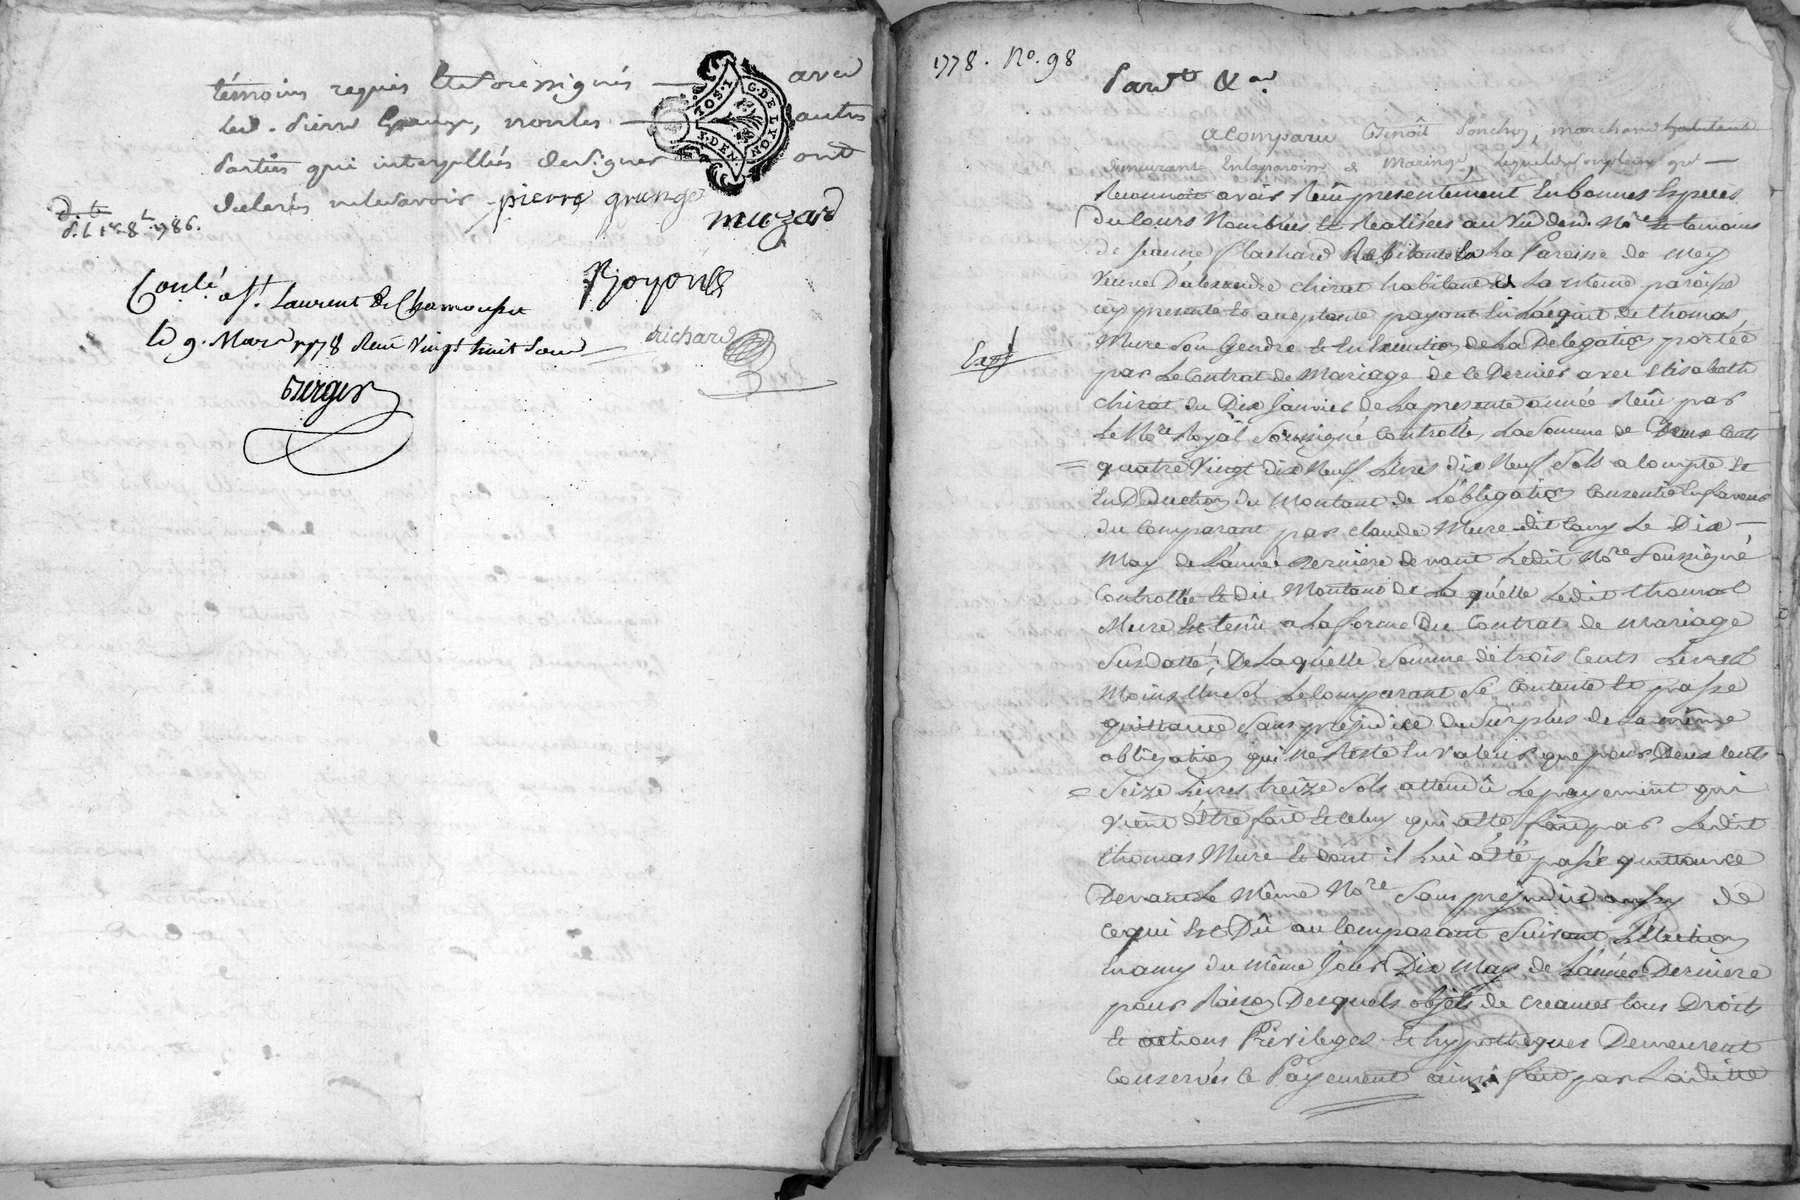 témoins requis et soussignés — avec
led. pierre Grange, non les — autres
parties qui interpellées de signer ont
déclaré ne le savoir pierre grange
muzard
G. DE LYON
d. t.
d. l. 1er 8bre 1786.
Conlé a St. Laurent de Chamousset
le 9. Mars 1778 Reçu vingt huit sous
Richard
Berger
1778. No. 98
Pardt &a.
a comparu Benoît Ponchon, marchand habitant
demeurant en la paroisse de Maringe, lequel de son plein gré —
Reconnoit avoir Reçû presentement En bonnes Especes
du Cours Nombrées et Realisées au vû dud. Nore et temoins
de Jeanne Plachard Habitante En La Paroisse de Meys
veuve D'alexandre chirat habitant de La meme paroisse
icy presente et acceptante payant En L'acquit de thomas
Mure son Gendre et En Execution de La Delegation portée
par Le Contrat de Mariage de ce Dernier avec Elisabeth
chirat du Dix Janvier de La presente année Reçû par
Le Nore Royal soussigné Controllé, La somme de Deux Cents
quatre Vingt dix Neuf Livres dix Neuf sols a Compte et
En Deduction du Montant de L'obligation Consentie En faveur
du Comparant par claude Mure dit Cany Le Dix —
May de L'année derniere devant Ledit Nore soussigné
Controllée et du Montant de La quelle Ledit thomas
Mure Est tenû a La forme du Contrat de Mariage
susdatté; De Laquelle somme de trois Cents Livres
Moins Un sol Le Comparant se Contente et passe
quittance sans prejudice du surplus de La même
obligation qui ne Reste En valeur que pour Deux Cents
seize Livres treize sols attendû Le payement qui
vient d'être fait et celuy qui a Eté fait par Ledit
thomas Mure et dont il Lui a Eté passé quittance
Devant Le Même Nore sans prejudice aussy de
ce qui Est Dû au Comparant suivant
du Même Jour Dix May de L'année Derniere
pour Raison Desquels objets de Creances tous Droits
et actions Privileges et hypotheques Demeurent
Conservés Le Payement ainsi fait par Ladite